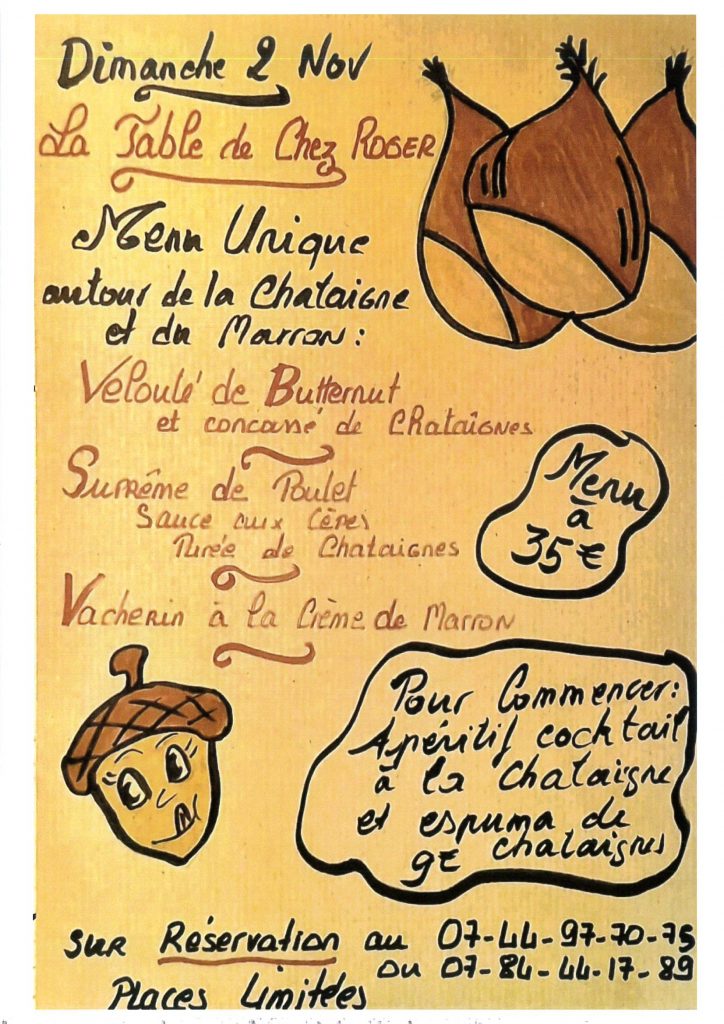 Dimanche 2 Nov
La Table de Chez ROGER
Menu Unique
autour de la Chataigne
et du Marron :
Velouté de Butternut
et concassé de Chataîgnes
Suprême de Poulet
Sauce aux Cèpes
Purée de Chataignes
Vacherin à la Crème de Marron
Menu
à
35 €
Pour Commencer :
Apéritif cocktail
à la chataigne
et espuma de
chataignes
9€
Sur Réservation au 07-44-97-70-75
ou 07-84-44-17-89
Places Limitées